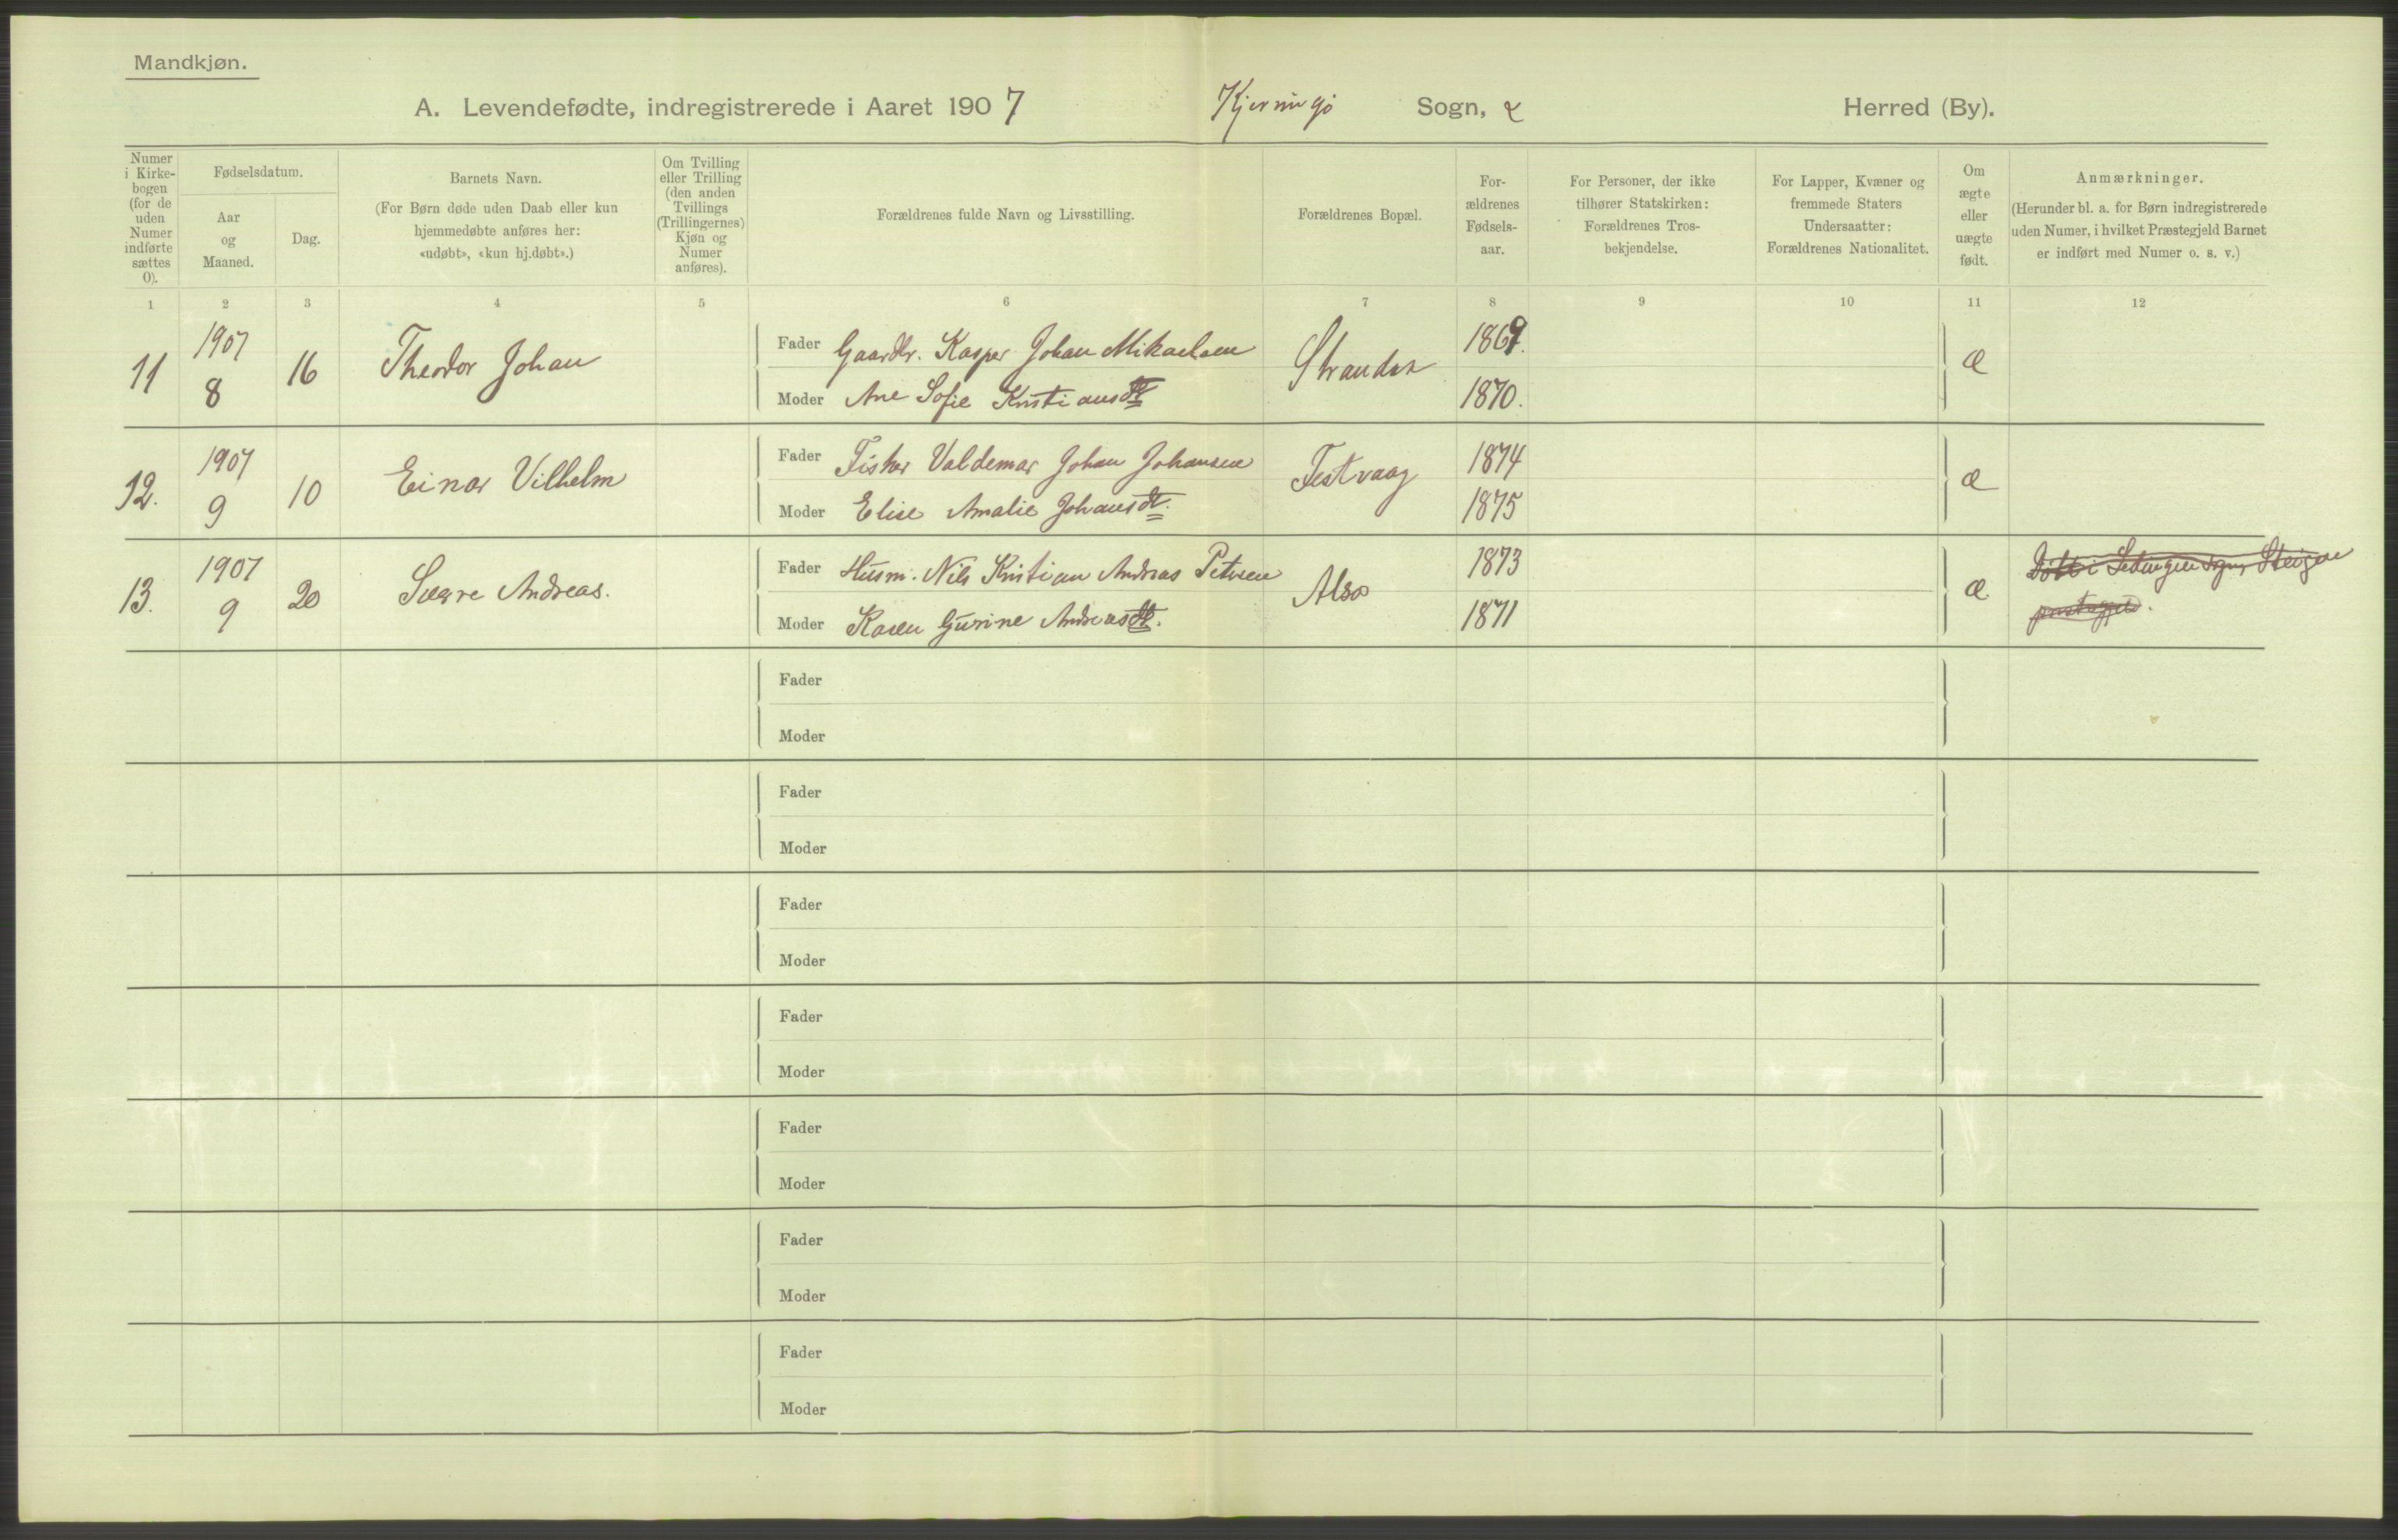 Mandkjøn.
A. Levendefødte, indregistrerede i Aaret 1907 Kjerringø Sogn, Herred (By).
Numer i Kirkebogen (for de uden Numer indførte sættes 0).
Fødselsdatum.
Aar og Maaned.
Dag.
Barnets Navn.
(For Børn døde uden Daab eller kun hjemmedøbte anføres her: «udøbt», «kun hj.døbt».)
Om Tvilling eller Trilling (den anden Tvillings (Trillingernes) Kjøn og Numer anføres).
Forældrenes fulde Navn og Livsstilling.
Forældrenes Bopæl.
Forældrenes Fødselsaar.
For Personer, der ikke tilhører Statskirken: Forældrenes Trosbekjendelse.
For Lapper, Kvæner og fremmede Staters Undersaatter: Forældrenes Nationalitet.
Om ægte eller uægte født.
Anmærkninger.
(Herunder bl. a. for Børn indregistrerede uden Numer, i hvilket Præstegjeld Barnet er indført med Numer o. s. v.)
1 2 3 4 5 6 7 8 9 10 11 12
11 1907 8 16 Theodor Johan
Fader Gaardbr. Kasper Johan Mikaelsen Stranden 1869.
Moder Ane Sofie Kristiansdtr 1870.
æ
12. 1907 9 10 Einar Vilhelm
Fader Fisker Valdemar Johan Johansen Festvaag 1874
Moder Elise Amalie Johansdtr. 1875
æ
13. 1907 9 20 Andreas.
Fader Husm. Nils Kristian Andreas Petersen Alsos 1873
Moder Karen Gurine Andreasdtr. 1871
æ.
Døbt i Ledingen Sogn, Steigen
præstegjeld.
Fader
Moder
Fader
Moder
Fader
Moder
Fader
Moder
Fader
Moder
Fader
Moder
Fader
Moder